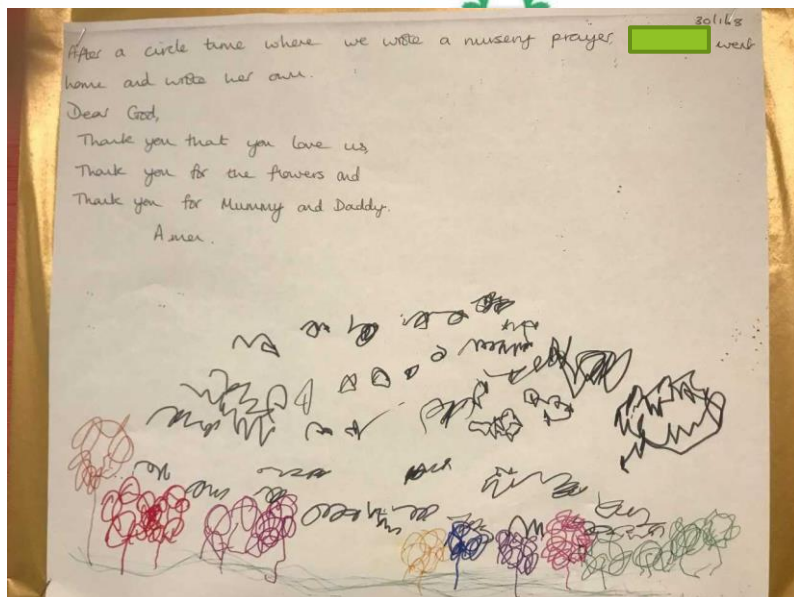 30/1/18
After a circle time where we wrote a nursery prayer, went
home and wrote her own.
Dear God,
Thank you that you love us,
Thank you for the flowers and
Thank you for Mummy and Daddy.
Amen.